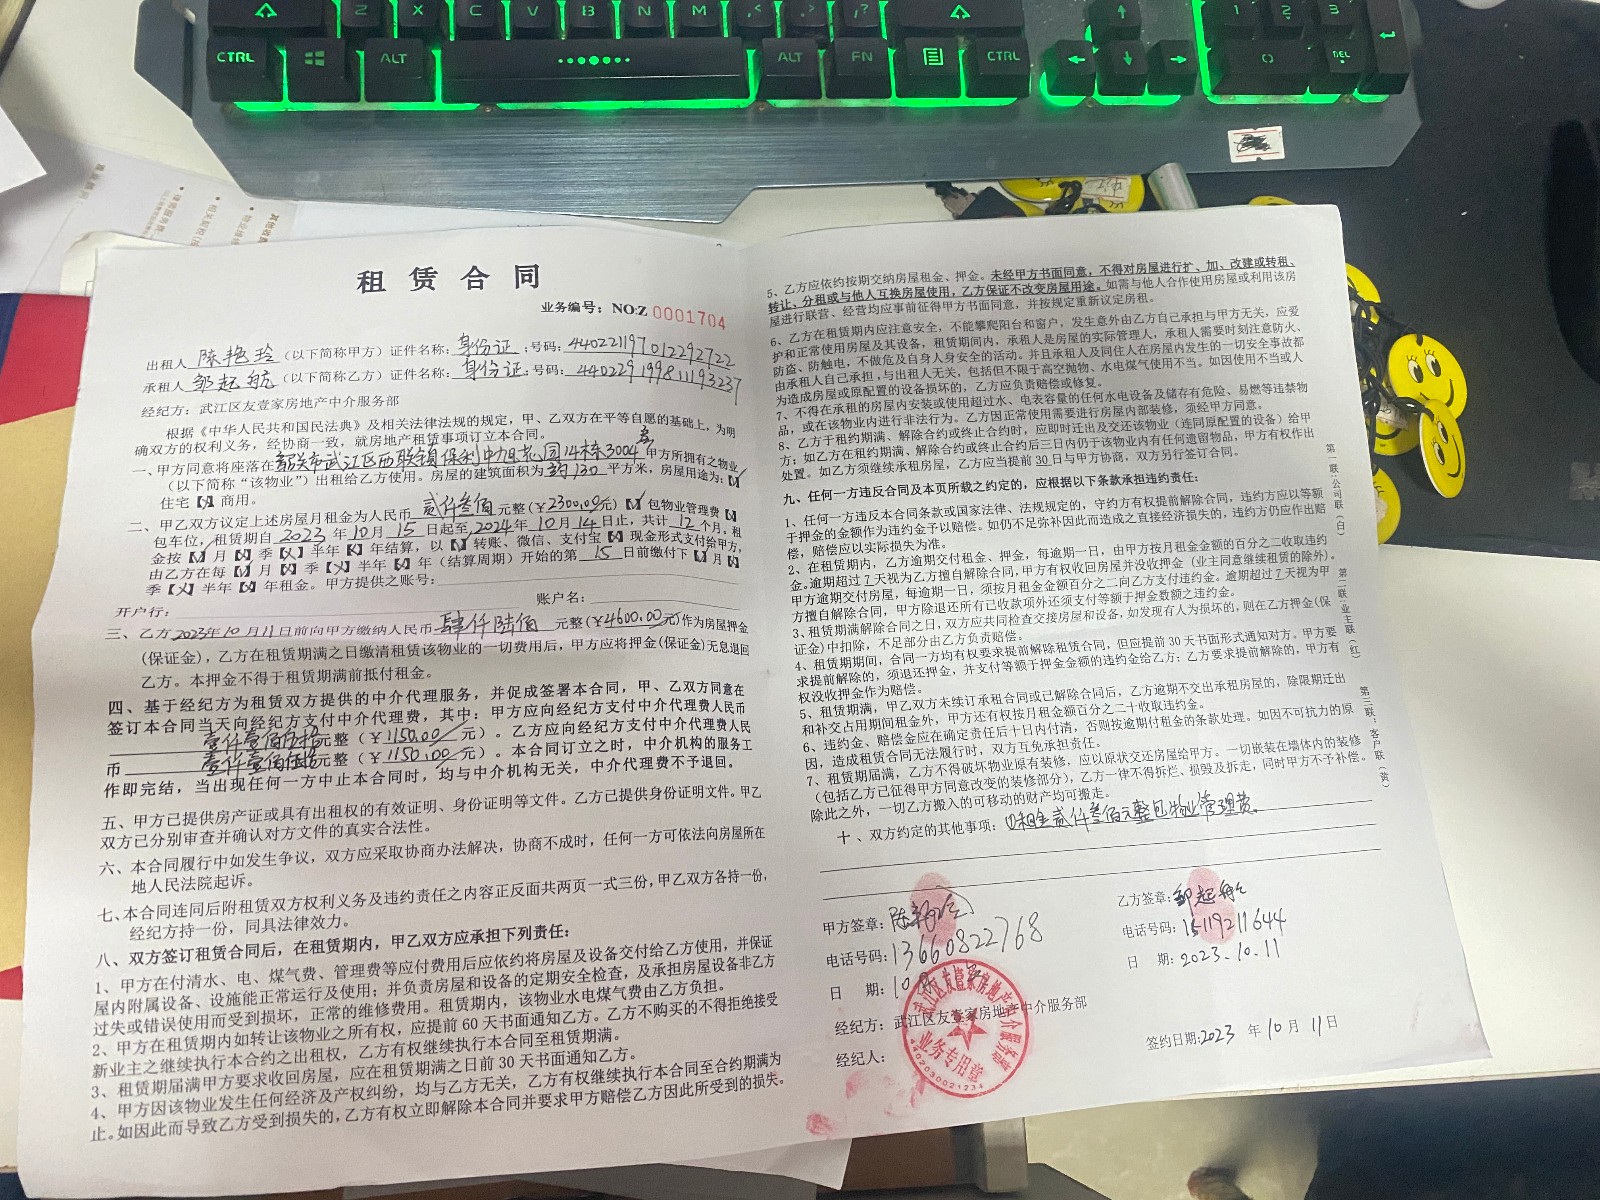 Z X C V B N M
1 2 3
CTRL ALT ALT FN CTRL DEL
租赁合同
业务编号：NO:Z 0001704
出租人 陈艳玲 （以下简称甲方）证件名称：身份证；号码：440221197012292722
承租人 邹起航 （以下简称乙方）证件名称：身份证；号码：440229199811193237
经纪方：武江区友壹家房地产中介服务部
根据《中华人民共和国民法典》及相关法律法规的规定，甲、乙双方在平等自愿的基础上，为明
确双方的权利义务，经协商一致，就房地产租赁事项订立本合同。
一、甲方同意将座落在韶关市武江区西联镇保利中 14栋3004 甲方所拥有之物业
（以下简称“该物业”）出租给乙方使用。房屋的建筑面积为 约130 平方米，房屋用途为：【 】
住宅【 】商用。
二、甲乙双方议定上述房屋月租金为人民币 贰仟叁佰 元整（￥2300.00元）【 】包物业管理费【 】
包车位，租赁期自 2023 年 10 月 15 日起至 2024年 10 月 14 日止，共计 12 个月。租
金按【 】月【 】季【 】半年【 】年结算，以【 】转账、微信、支付宝【 】现金形式支付给甲方，
由乙方在每【 】月【 】季【 】半年【 】年（结算周期）开始的第 15 日前缴付下【 】月【 】
季【 】半年【 】年租金。甲方提供之账号：
开户行： 账户名：
三、乙方2023年10月11日前向甲方缴纳人民币 肆仟陆佰 元整（￥4600.00元）作为房屋押金
(保证金)，乙方在租赁期满之日缴清租赁该物业的一切费用后，甲方应将押金(保证金)无息退回
乙方。本押金不得于租赁期满前抵付租金。
四、基于经纪方为租赁双方提供的中介代理服务，并促成签署本合同，甲、乙双方同意在
签订本合同当天向经纪方支付中介代理费，其中：甲方应向经纪方支付中介代理费人民币
壹仟壹佰伍拾元整（￥1150.00 元）。乙方应向经纪方支付中介代理费人民
币 壹仟壹佰伍拾元整（￥1150.00 元）。本合同订立之时，中介机构的服务工
作即完结，当出现任何一方中止本合同时，均与中介机构无关，中介代理费不予退回。
五、甲方已提供房产证或具有出租权的有效证明、身份证明等文件。乙方已提供身份证明文件。甲乙
双方已分别审查并确认对方文件的真实合法性。
六、本合同履行中如发生争议，双方应采取协商办法解决，协商不成时，任何一方可依法向房屋所在
地人民法院起诉。
七、本合同连同后附租赁双方权利义务及违约责任之内容正反面共两页一式三份，甲乙双方各持一份，
经纪方持一份，同具法律效力。
八、双方签订租赁合同后，在租赁期内，甲乙双方应承担下列责任：
1、甲方在付清水、电、煤气费、管理费等应付费用后应依约将房屋及设备交付给乙方使用，并保证
屋内附属设备、设施能正常运行及使用；并负责房屋和设备的定期安全检查，及承担房屋设备非乙方
过失或错误使用而受到损坏，正常的维修费用。租赁期内，该物业水电煤气费由乙方负担。
2、甲方在租赁期内如转让该物业之所有权，应提前60天书面通知乙方。乙方不购买的不得拒绝接受
新业主之继续执行本合约之出租权，乙方有权继续执行本合同至租赁期满。
3、租赁期届满甲方要求收回房屋，应在租赁期满之日前30天书面通知乙方。
4、甲方因该物业发生任何经济及产权纠纷，均与乙方无关，乙方有权继续执行本合同至合约期满为
止。如因此而导致乙方受到损失的，乙方有权立即解除本合同并要求甲方赔偿乙方因此所受到的损失。
5、乙方应依约按期交纳房屋租金、押金。未经甲方书面同意，不得对房屋进行扩、加、改建或转租、
转让、分租或与他人互换房屋使用，乙方保证不改变房屋用途。如需与他人合作使用房屋或利用该房
屋进行联营、经营均应事前征得甲方书面同意，并按规定重新议定房租。
6、乙方在租赁期内应注意安全，不能攀爬阳台和窗户，发生意外由乙方自己承担与甲方无关，应爱
护和正常使用房屋及其设备，租赁期间内，承租人是房屋的实际管理人，承租人需要时刻注意防火、
防盗、防触电，不做危及自身人身安全的活动。并且承租人及同住人在房屋内发生的一切安全事故都
由承租人自己承担，与出租人无关，包括但不限于高空抛物、水电煤气使用不当。如因使用不当或人
为造成房屋或原配置的设备损坏的，乙方应负责赔偿或修复。
7、不得在承租的房屋内安装或使用超过水、电表容量的任何水电设备及储存有危险、易燃等违禁物
品，或在该物业内进行非法行为。乙方因正常使用需要进行房屋内部装修，须经甲方同意。
8、乙方于租约期满、解除合约或终止合约时，应即时迁出及交还该物业（连同原配置的设备）给甲
方；如乙方在租约期满、解除合约或终止合约后三日内仍于该物业内有任何遗留物品，甲方有权作出
处置。如乙方须继续承租房屋，乙方应当提前30日与甲方协商，双方另行签订合同。
九、任何一方违反合同及本页所载之约定的，应根据以下条款承担违约责任：
1、任何一方违反本合同条款或国家法律、法规规定的，守约方有权提前解除合同，违约方应以等额
于押金的金额作为违约金予以赔偿。如仍不足弥补因此而造成之直接经济损失的，违约方仍应作出赔
偿，赔偿应以实际损失为准。
2、在租赁期内，乙方逾期交付租金、押金，每逾期一日，由甲方按月租金金额的百分之二收取违约
金。逾期超过7天视为乙方擅自解除合同，甲方有权收回房屋并没收押金（业主同意继续租赁的除外）。
甲方逾期交付房屋，每逾期一日，须按月租金金额百分之二向乙方支付违约金。逾期超过7天视为甲
方擅自解除合同，甲方除退还所有已收款项外还须支付等额于押金数额之违约金。
3、租赁期满解除合同之日，双方应共同检查交接房屋和设备，如发现有人为损坏的，则在乙方押金(保
证金)中扣除，不足部分由乙方负责赔偿。
4、租赁期期间，合同一方均有权要求提前解除租赁合同，但应提前30天书面形式通知对方。甲方要
求提前解除的，须退还押金，并支付等额于押金金额的违约金给乙方；乙方要求提前解除的，甲方有
权没收押金作为赔偿。
5、租赁期满，甲乙双方未续订承租合同或已解除合同后，乙方逾期不交出承租房屋的，除限期迁出
和补交占用期间租金外，甲方还有权按月租金额百分之二十收取违约金。
6、违约金、赔偿金应在确定责任后十日内付清，否则按逾期付租金的条款处理。如因不可抗力的原
因，造成租赁合同无法履行时，双方互免承担责任。
7、租赁期届满，乙方不得破坏物业原有装修，应以原状交还房屋给甲方。一切嵌装在墙体内的装修
（包括乙方已征得甲方同意改变的装修部分），乙方一律不得拆烂、损毁及拆走，同时甲方不予补偿。
除此之外，一切乙方搬入的可移动的财产均可搬走。
十、双方约定的其他事项：①租金贰仟叁佰元整包物业管理费。
甲方签章：陈艳玲
乙方签章：邹起航
电话号码：13660822768
电话号码：15119211644
日 期：10
日 期：2023.10.11
经纪方：武江区友壹家房地产中介服务部
经纪人：
签约日期：2023 年 10 月 11 日
武江区友壹家房地产中介服务部
业务专用章
4402030021234
第一联：公司联（白）
第二联：业主联（红）
第三联：客户联（黄）